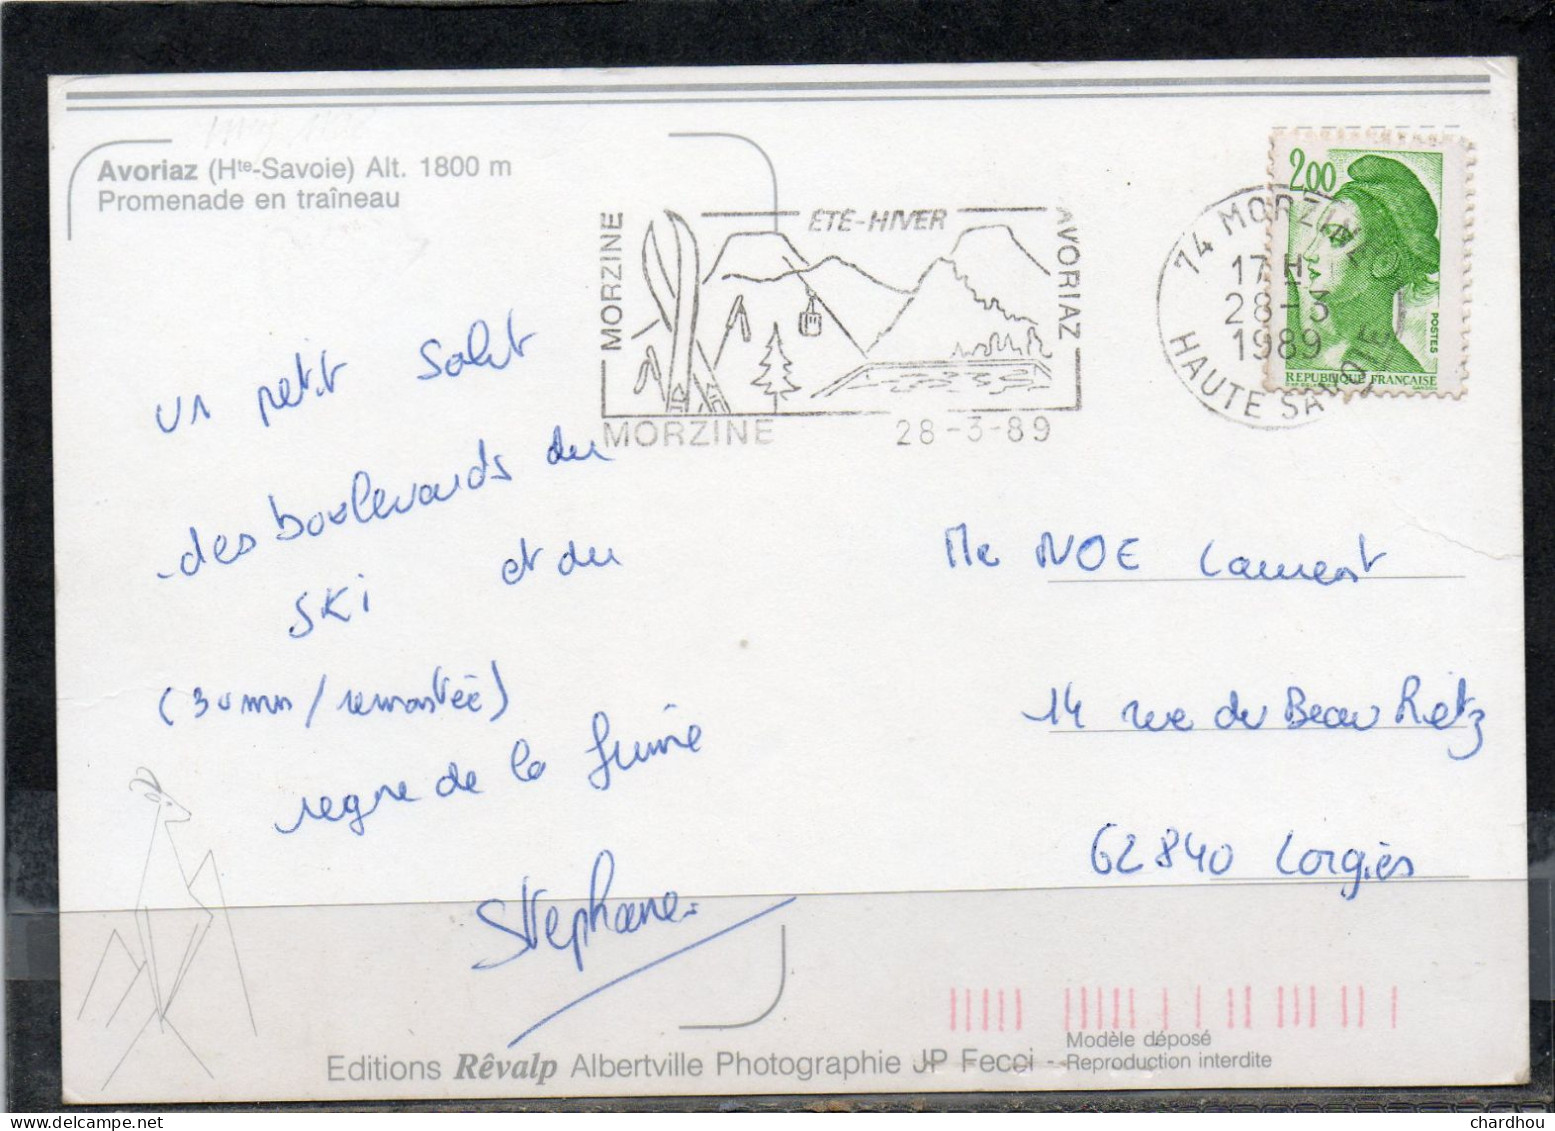 Avoriaz (Hte-Savoie) Alt. 1800 m
Promenade en traîneau
MORZINE
ÉTÉ-HIVER
AVORIAZ
MORZINE 28-3-89
74 MORZINE
17 H
28-3
1989
HAUTE SAVOIE
2,00
POSTES
REPUBLIQUE FRANÇAISE
un petit Salut
des boulevards du
SKI et du
(30mn/remontée)
regne de la frime
Stephane
Me NOE Laurent
14 rue du Beau Rietz
62840 Lorgies
Editions Rêvalp Albertville Photographie JP Fecci -
Modèle déposé
Reproduction interdite
chardhou